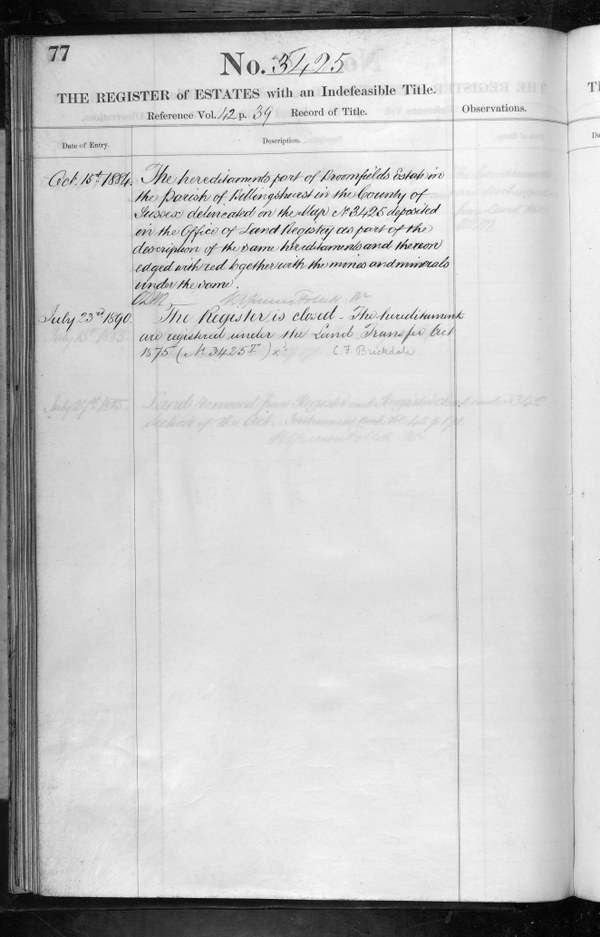 77
No. 3425
THE REGISTER of ESTATES with an Indefeasible Title.
Reference Vol. 42 p. 39 Record of Title.
Observations.
Date of Entry.
Description.
Oct. 15th 1884. The hereditaments part of Broomfields Estate in
the Parish of Billingshurst in the County of
Sussex delineated on the Map No 3425 deposited
in the Office of Land Registry as part of the
description of the same hereditaments and thereon
edged with red together with the mines and minerals
under the same.
July 23rd 1890. The Register is closed - The hereditaments
are registered under the Land Transfer Act
1875 (No 3425
C. F. Brickdale